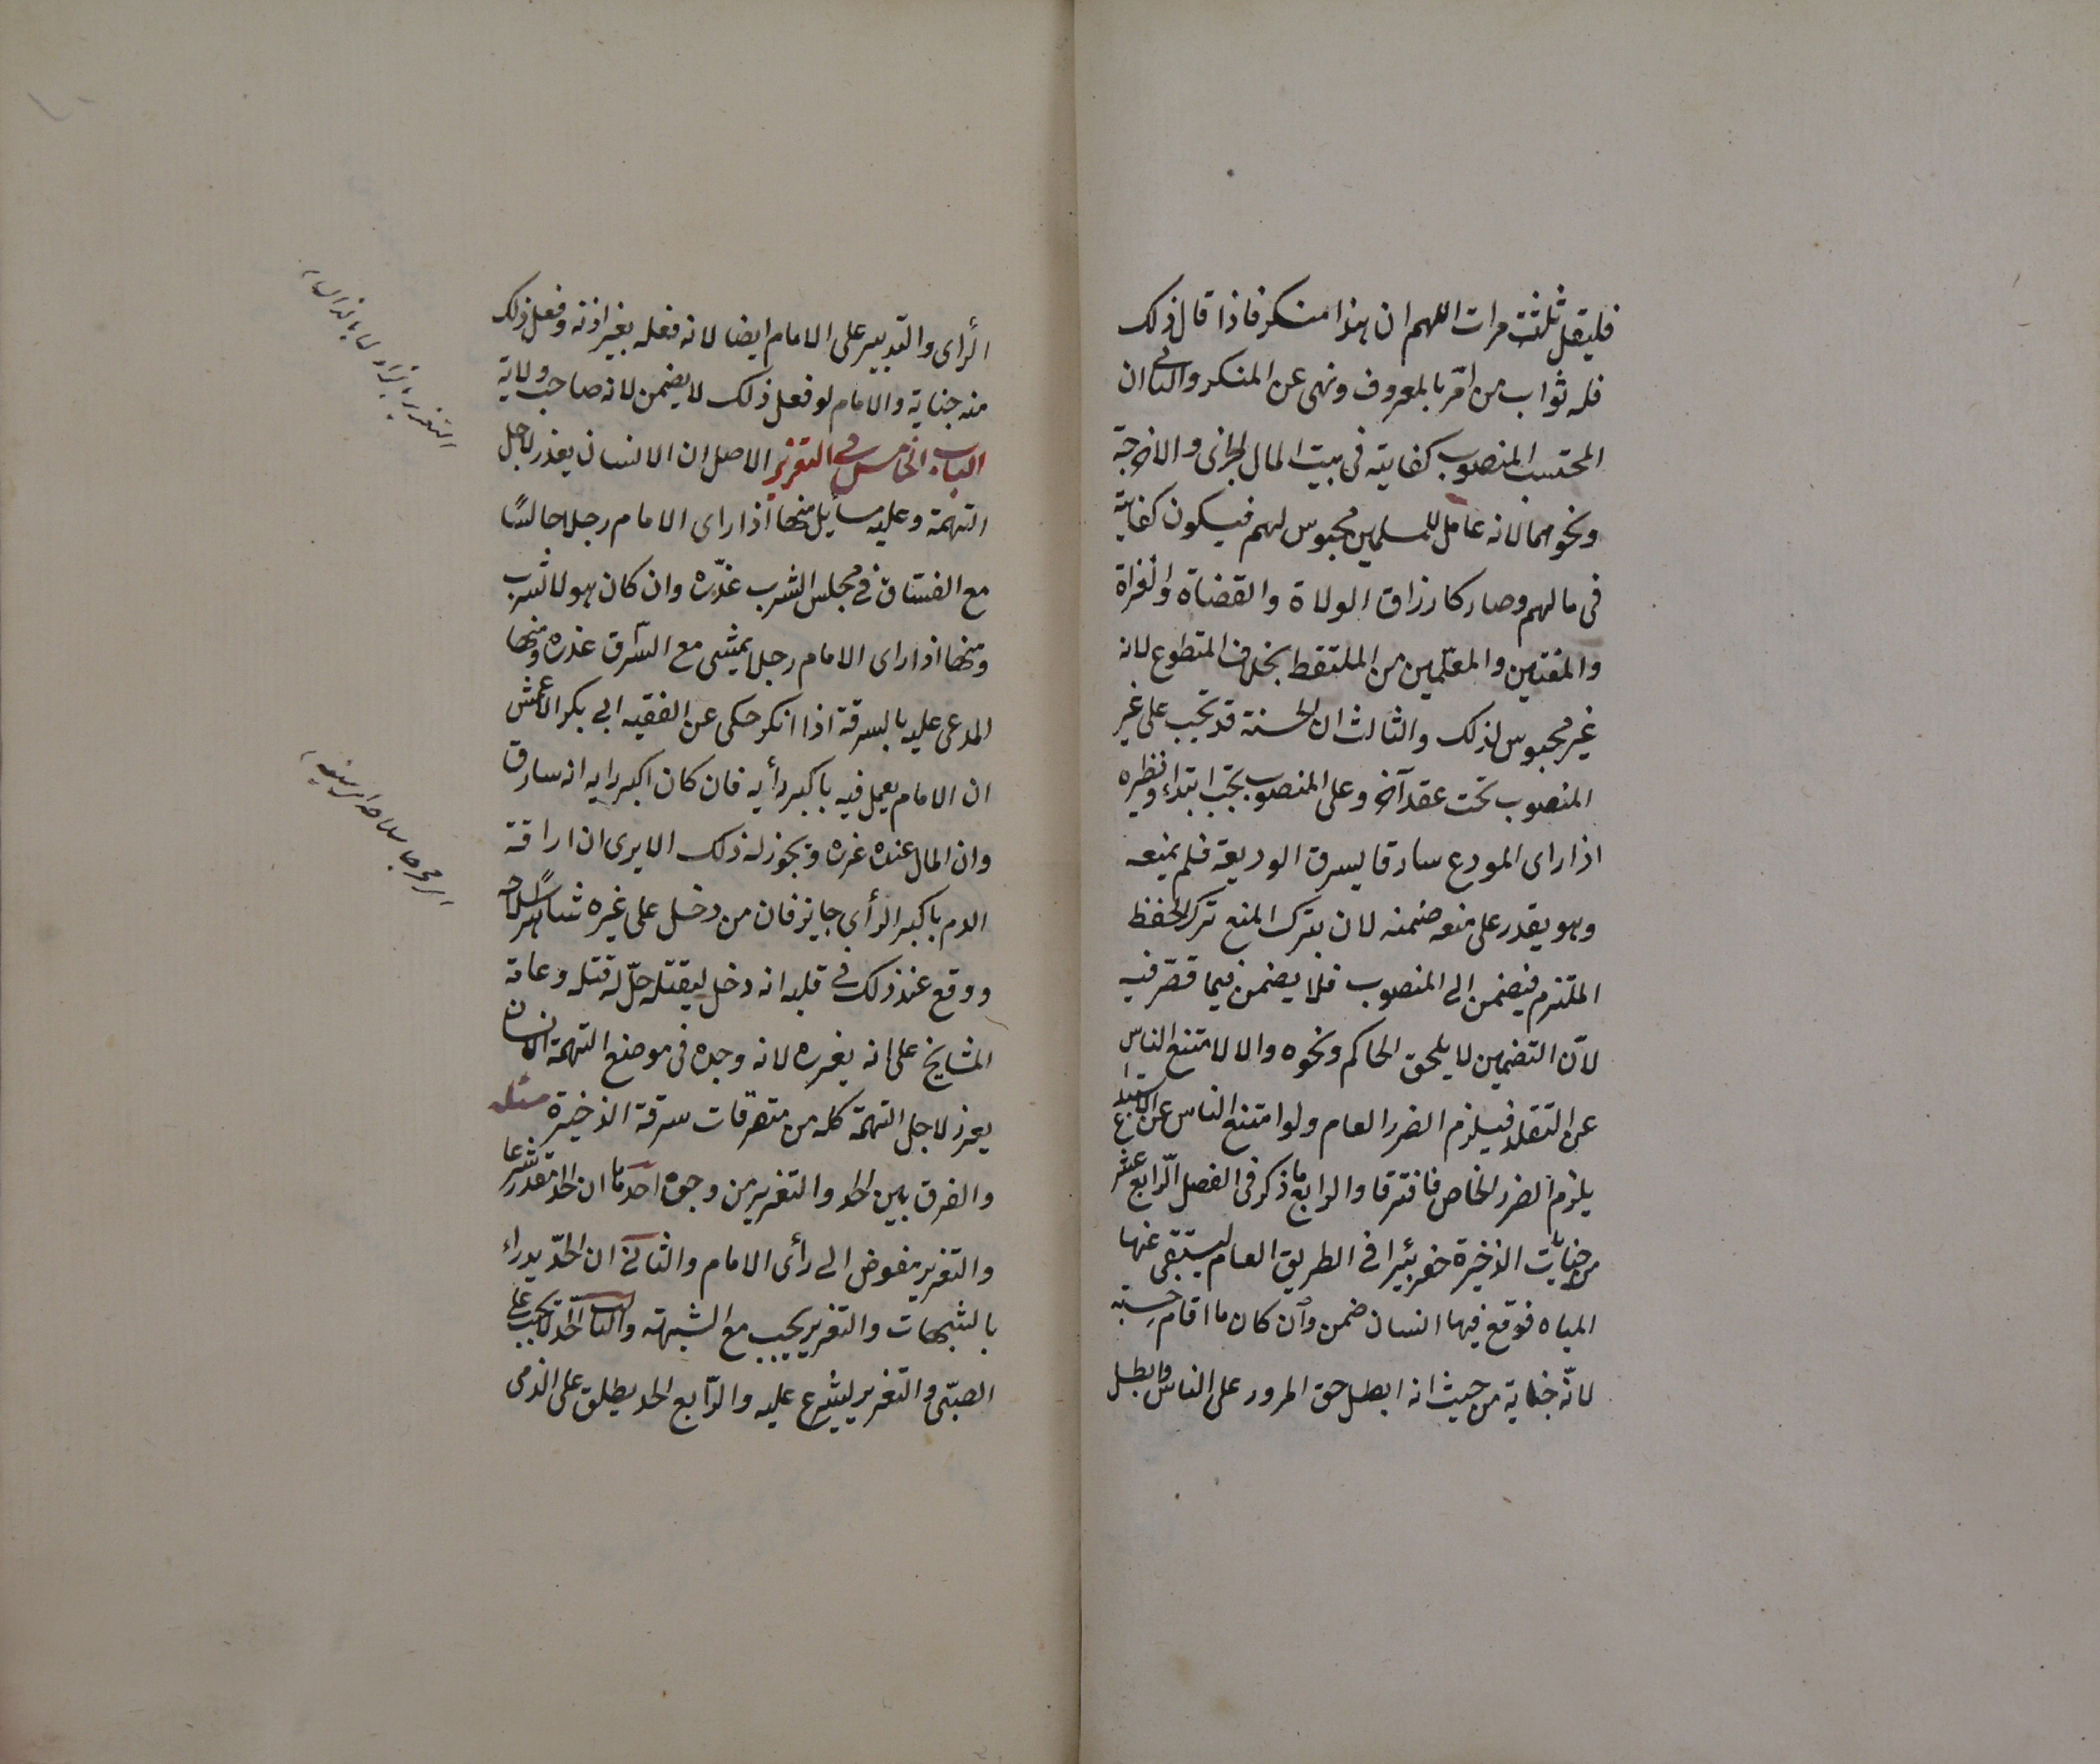 فليقل ثلثت مرات اللهم ان هذا منكر فاذا قال ذلك
فله ثواب من امر بالمعروف ونهى عن المنكر والثانى ان
المحتسب المنصوب كفايته فى بيت المال الجزى والاخرجة
ونحوهما لانه عامل للمسلمين محبوس لهم فيكون كفايته
فى مالهم وصار كارزاق الولاة والقضاة والغزاة
والمفتين والمعلمين من الملتقط بخلاف المتطوع لانه
غير محبوس لذلك والثالث ان الحسنة قد تجب على غير
المنصوب تحت عقد آخر وعلى المنصوب تجب ابتداء ونظيره
اذا راى المودع سارقا يسرق الوديعة فلم يمنعه
وهو يقدر على منعه ضمنه لان بترك المنع ترك الحفظ
الملتزم فيضمن الى المنصوب فلا يضمن فيما قصر فيه
لانّ التضمين لا يلحق الحاكم ونحوه والا لامتنع الناس
عن التقلد فيلزم الضرر العام ولو امتنع الناس عن الاستيداع
يلزم الضرر الخاص فافترقا والرابع ما ذكر فى الفصل الرّابع عشر
من جنايات الذخيرة حفر بئيرا فى الطريق العام ليستقى عنها
المياه فوقع فيها انسان ضمن وان كان ما اقام حسبته
لانّه جناية من حيث انه ابطل حق المرور على الناس وابطل
الرأى والتدبير على الامام ايضا لانه فعله بغير اذنه وفعل ذلك
منه جناية والامام لو فعل ذلك لا يضمن لانه صاحب ولاية
الباب الخامس فى التعزير الاصل ان الانسان يعذر لاجل
التهمة وعليه مسائل منها اذا راى الامام رجلا جالسًا
مع الفسّاق فى مجلس الشرب عذّره وان كان هو لا شرب
ومنها اذا راى الامام رجلا يمشى مع السّرق عذره ومنها
المدعى عليه بالسرقة اذا انكر حكى عن الفقيه ابى بكر الاعمش
ان الامام يعمل فيه باكبر رأيه فان كان اكبر رايه انه سارق
وان المال عنده عزره ويجوز له ذلك الا يرى ان اراقة
الدم باكبر الرأى جايز فان من دخل على غيره شاهرًا سلاحه
ووقع عند ذلك فى قلبه انه دخل ليقتله حلّ له قتله وعامة
المشايخ على انه يعزره لانه وجده فى موضع التهمة الانسان
يعزر لاجل التهمة كله من متفرقات سرقة الذخيرة مسئلة
والفرق بين الحد والتعزير من وجوه احدها ان الحد مقدر شرعا
والتعزير مفوض الى رأى الامام والثانى ان الحدّ يدراء
بالشبهات والتعزير يجب مع الشبهة والثالث الحدّ لا يجب على
الصبّى والتعزير يشرع عليه والرّابع الحد يطلق على الذمى